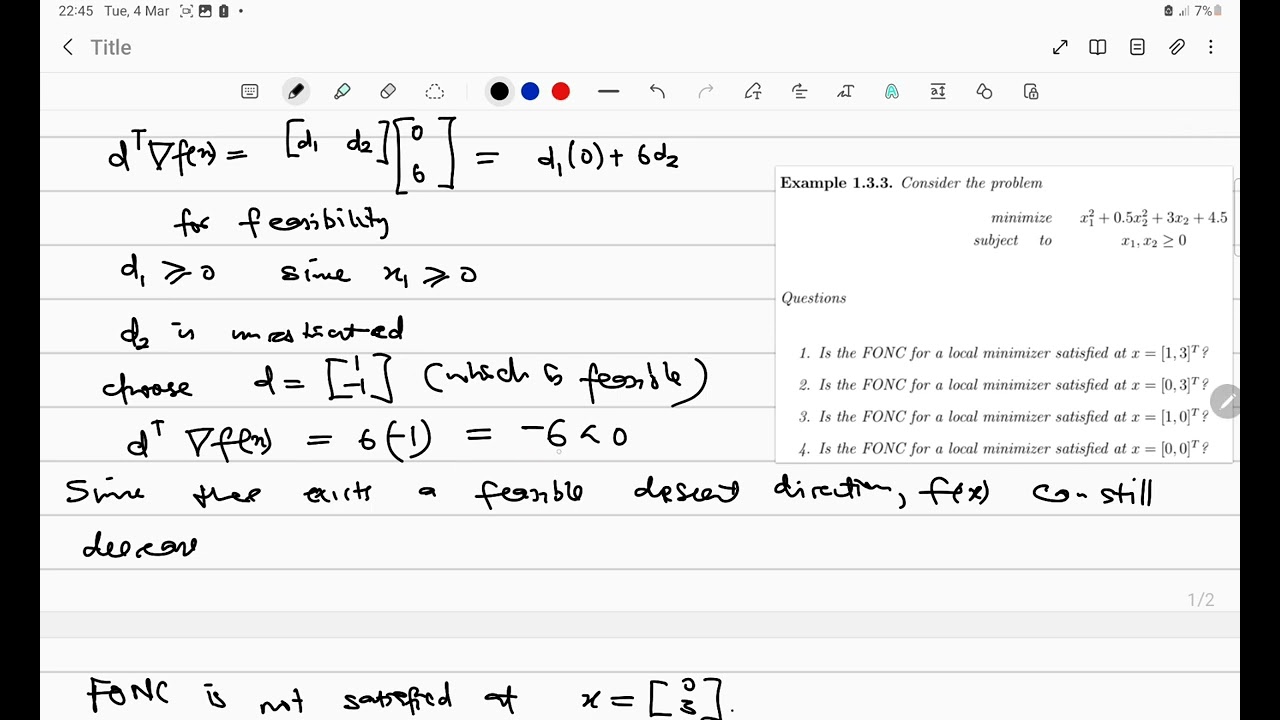 22:45 Tue, 4 Mar
7%
Title
dᵀ∇f(x) = [d₁ d₂] [0 6] = d₁(0) + 6d₂
for feasibility
d₁ ⩾ 0 since x₁ ⩾ 0
d₂ is
choose d = [1 -1] (which is feasible)
dᵀ ∇f(x) = 6(-1) = -6 < 0
Since exists a feasible descent direction, f(x) can still
FONC is not satisfied at x = [0 3].
Example 1.3.3. Consider the problem
minimize x₁² + 0.5x₂² + 3x₂ + 4.5
subject to x₁, x₂ ≥ 0
Questions
1. Is the FONC for a local minimizer satisfied at x = [1, 3]ᵀ?
2. Is the FONC for a local minimizer satisfied at x = [0, 3]ᵀ?
3. Is the FONC for a local minimizer satisfied at x = [1, 0]ᵀ?
4. Is the FONC for a local minimizer satisfied at x = [0, 0]ᵀ?
1/2